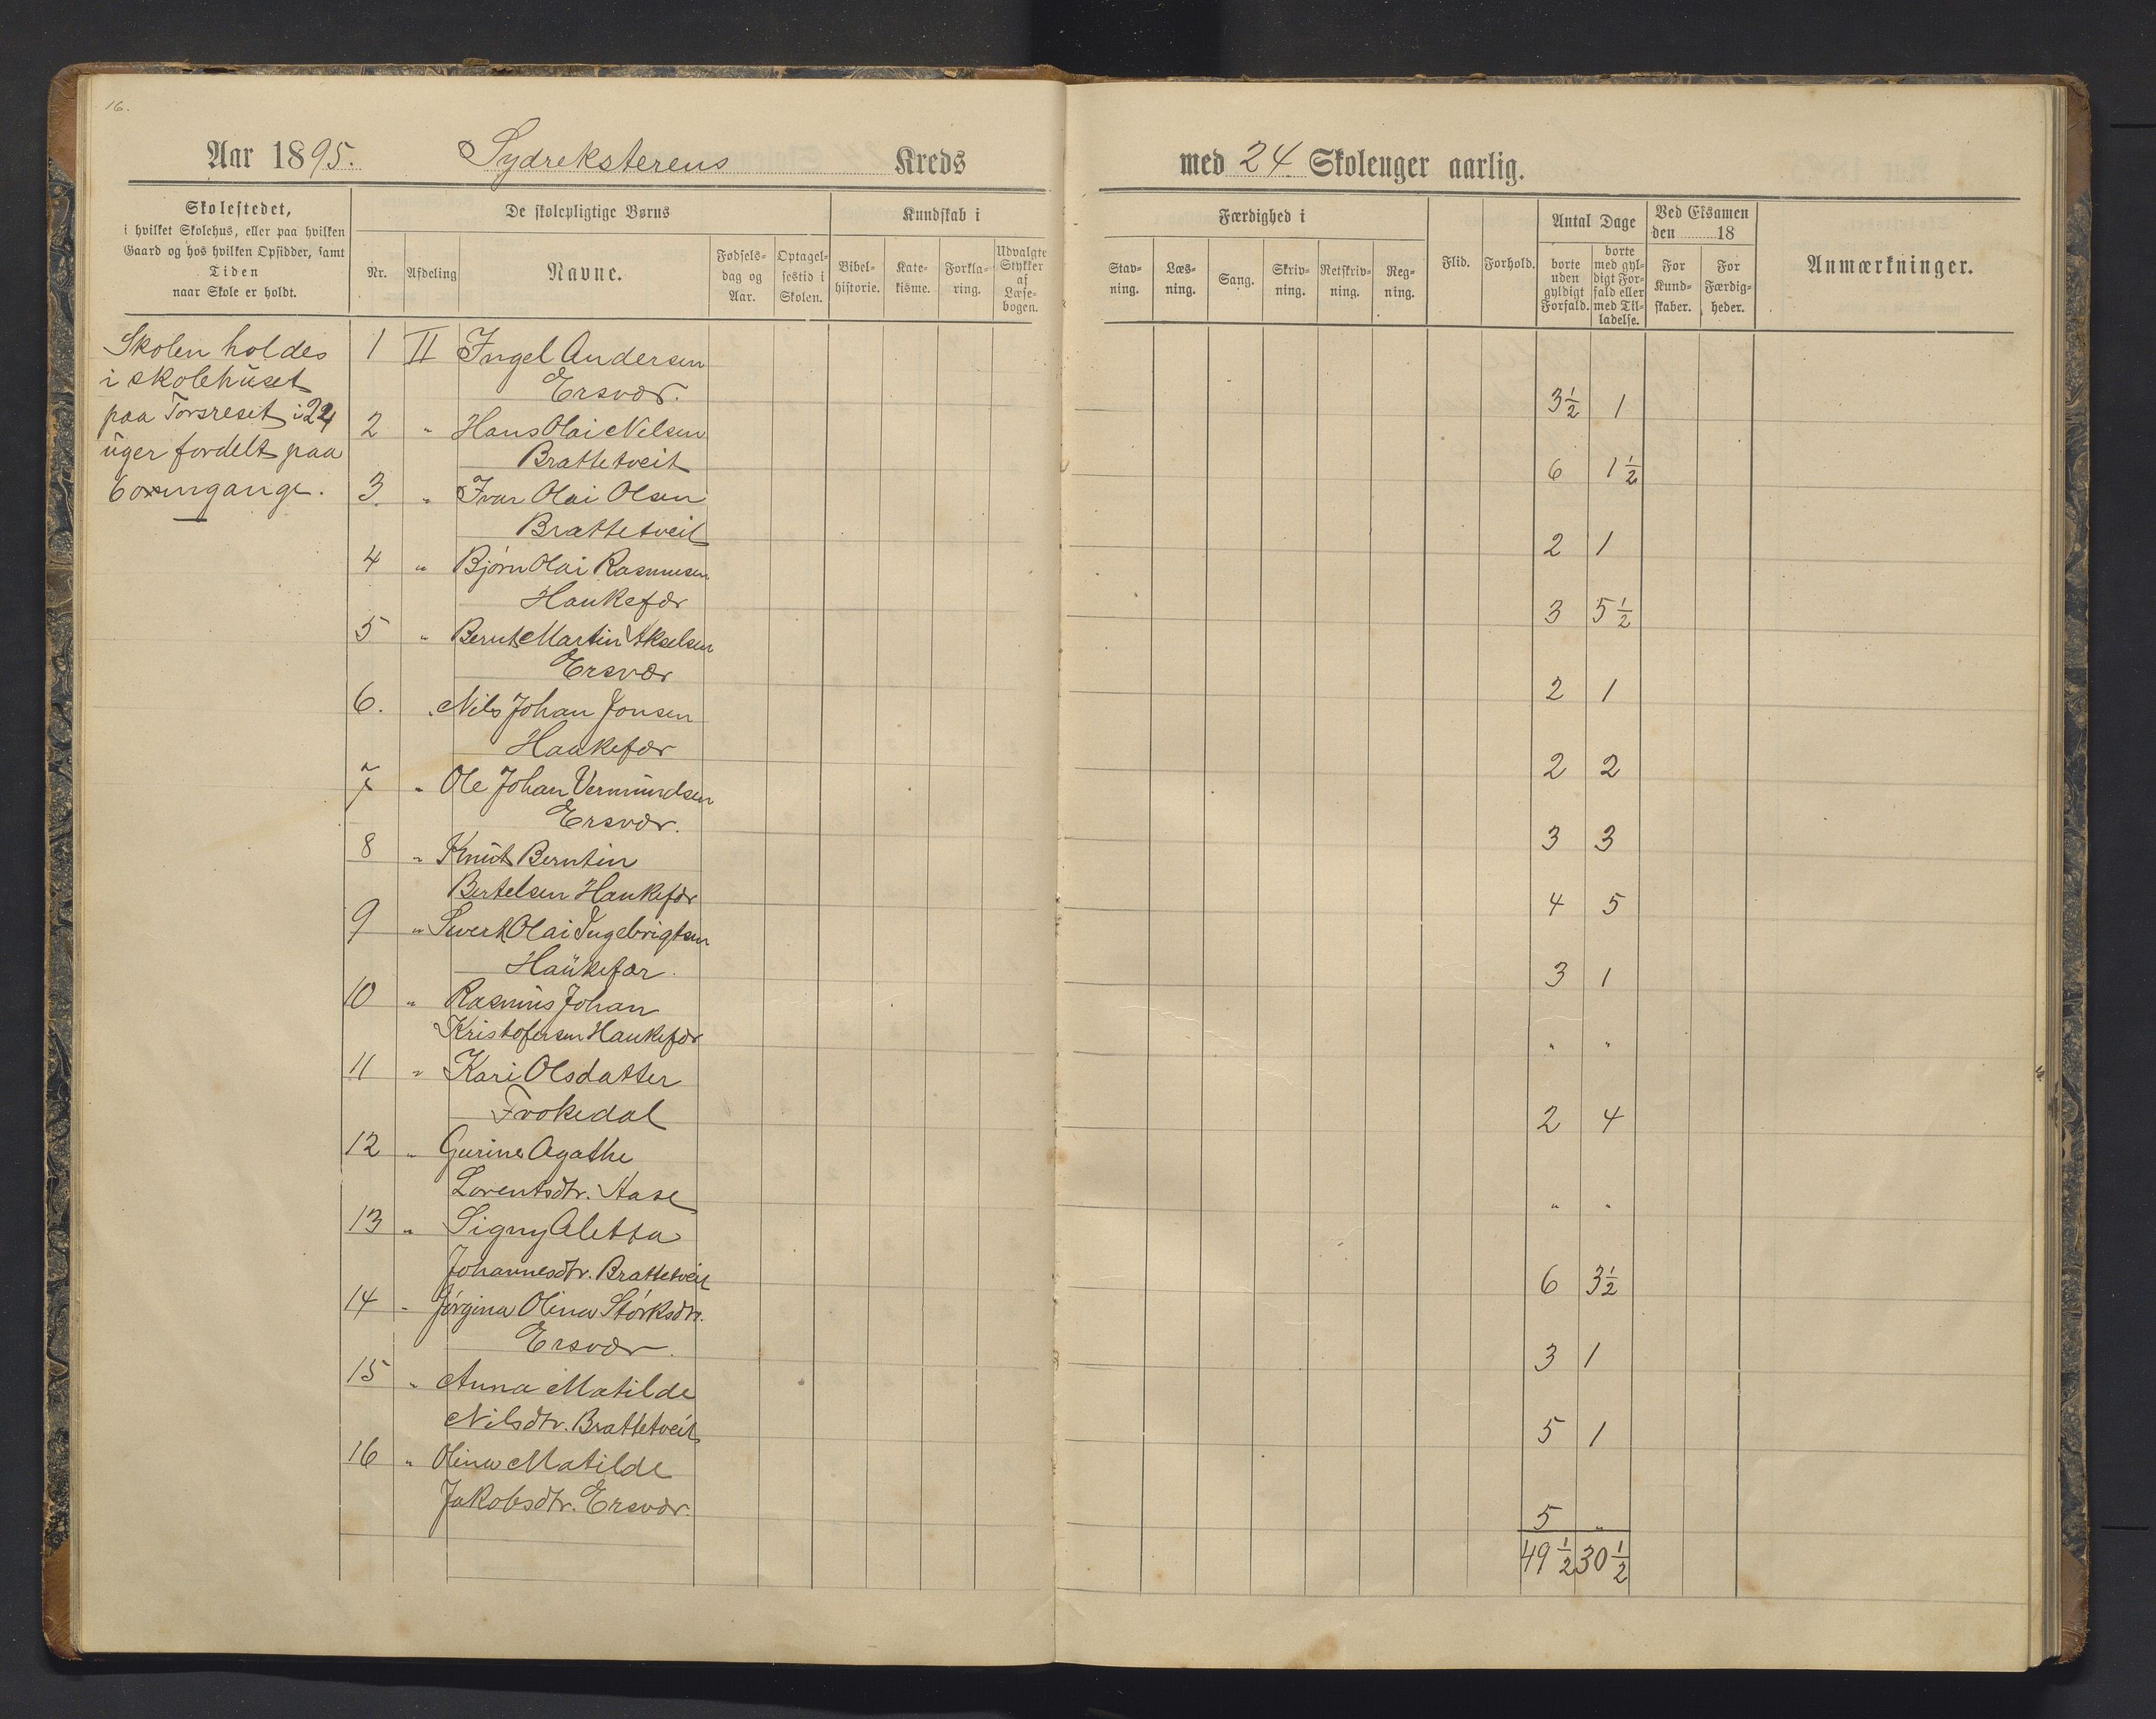 16.
Aar 1895. Sydreksterens Kreds
med 24 Skoleuger aarlig.
Skolestedet,
i hvilket Skolehus, eller paa hvilken
Gaard og hos hvilken Opsidder, samt
Tiden
naar Skole er holdt.
De skolepligtige Børns
Nr.
Afdeling
Navne.
Fødsels-
dag og
Aar.
Optagel-
sestid i
Skolen.
Kundskab i
Bibel-
historie.
Kate-
kisme.
Forkla-
ring.
Udvalgte
Stykker
af
Læse-
bogen.
Færdighed i
Stav-
ning.
Læs-
ning.
Sang.
Skriv-
ning.
Retskriv-
ning.
Reg-
ning.
Flid.
Forhold.
Antal Dage
borte
uden
gyldigt
Forfald.
borte
med gyl-
digt For-
fald eller
med Til-
ladelse.
Ved Eksamen
den 18
For
Kund-
skaber.
For
Færdig-
heder.
Anmærkninger.
Skolen holdes
i skolehuset
paa Torsreset i 24
uger fordelt paa
6 omgange.
1 II Ingel Andersen
Ersvær. 3½ 1
2 " Hans Olai Nilsen
Brattetveit 6 1½
3 " Ivar Olai Olsen
Brattetveit 2 1
4 " Bjørn Olai Rasmusen
Haukefær 3 5½
5 " Bernt Martin Akselsen
Ersvær 2 1
6. " Nils Johan Jonsen
Haukefær 2 2
7 " Ole Johan Vermundsen
Ersvær. 3 3
8 " Knut Berntin
Bertelsen Haukefær 4 5
9 " Sivert Olai Ingebrigtsen
Haukefær. 3 1
10 " Rasmus Johan
Kristofersen Haukefær " "
11 " Kari Olsdatter
Frokedal 2 4
12 " Gurine Agathe
Lorentsdtr. Aase " "
13 " Signy Aletta
Johannesdtr. Brattetveit 6 3½
14 " Jørgina Olina Størksdtr.
Ersvær. 3 1
15 " Anna Matilde
Nilsdtr. Brattetveit 5 1
16 " Olina Matilde
Jakobsdtr. Ersvær. 5 "
49½ 30½